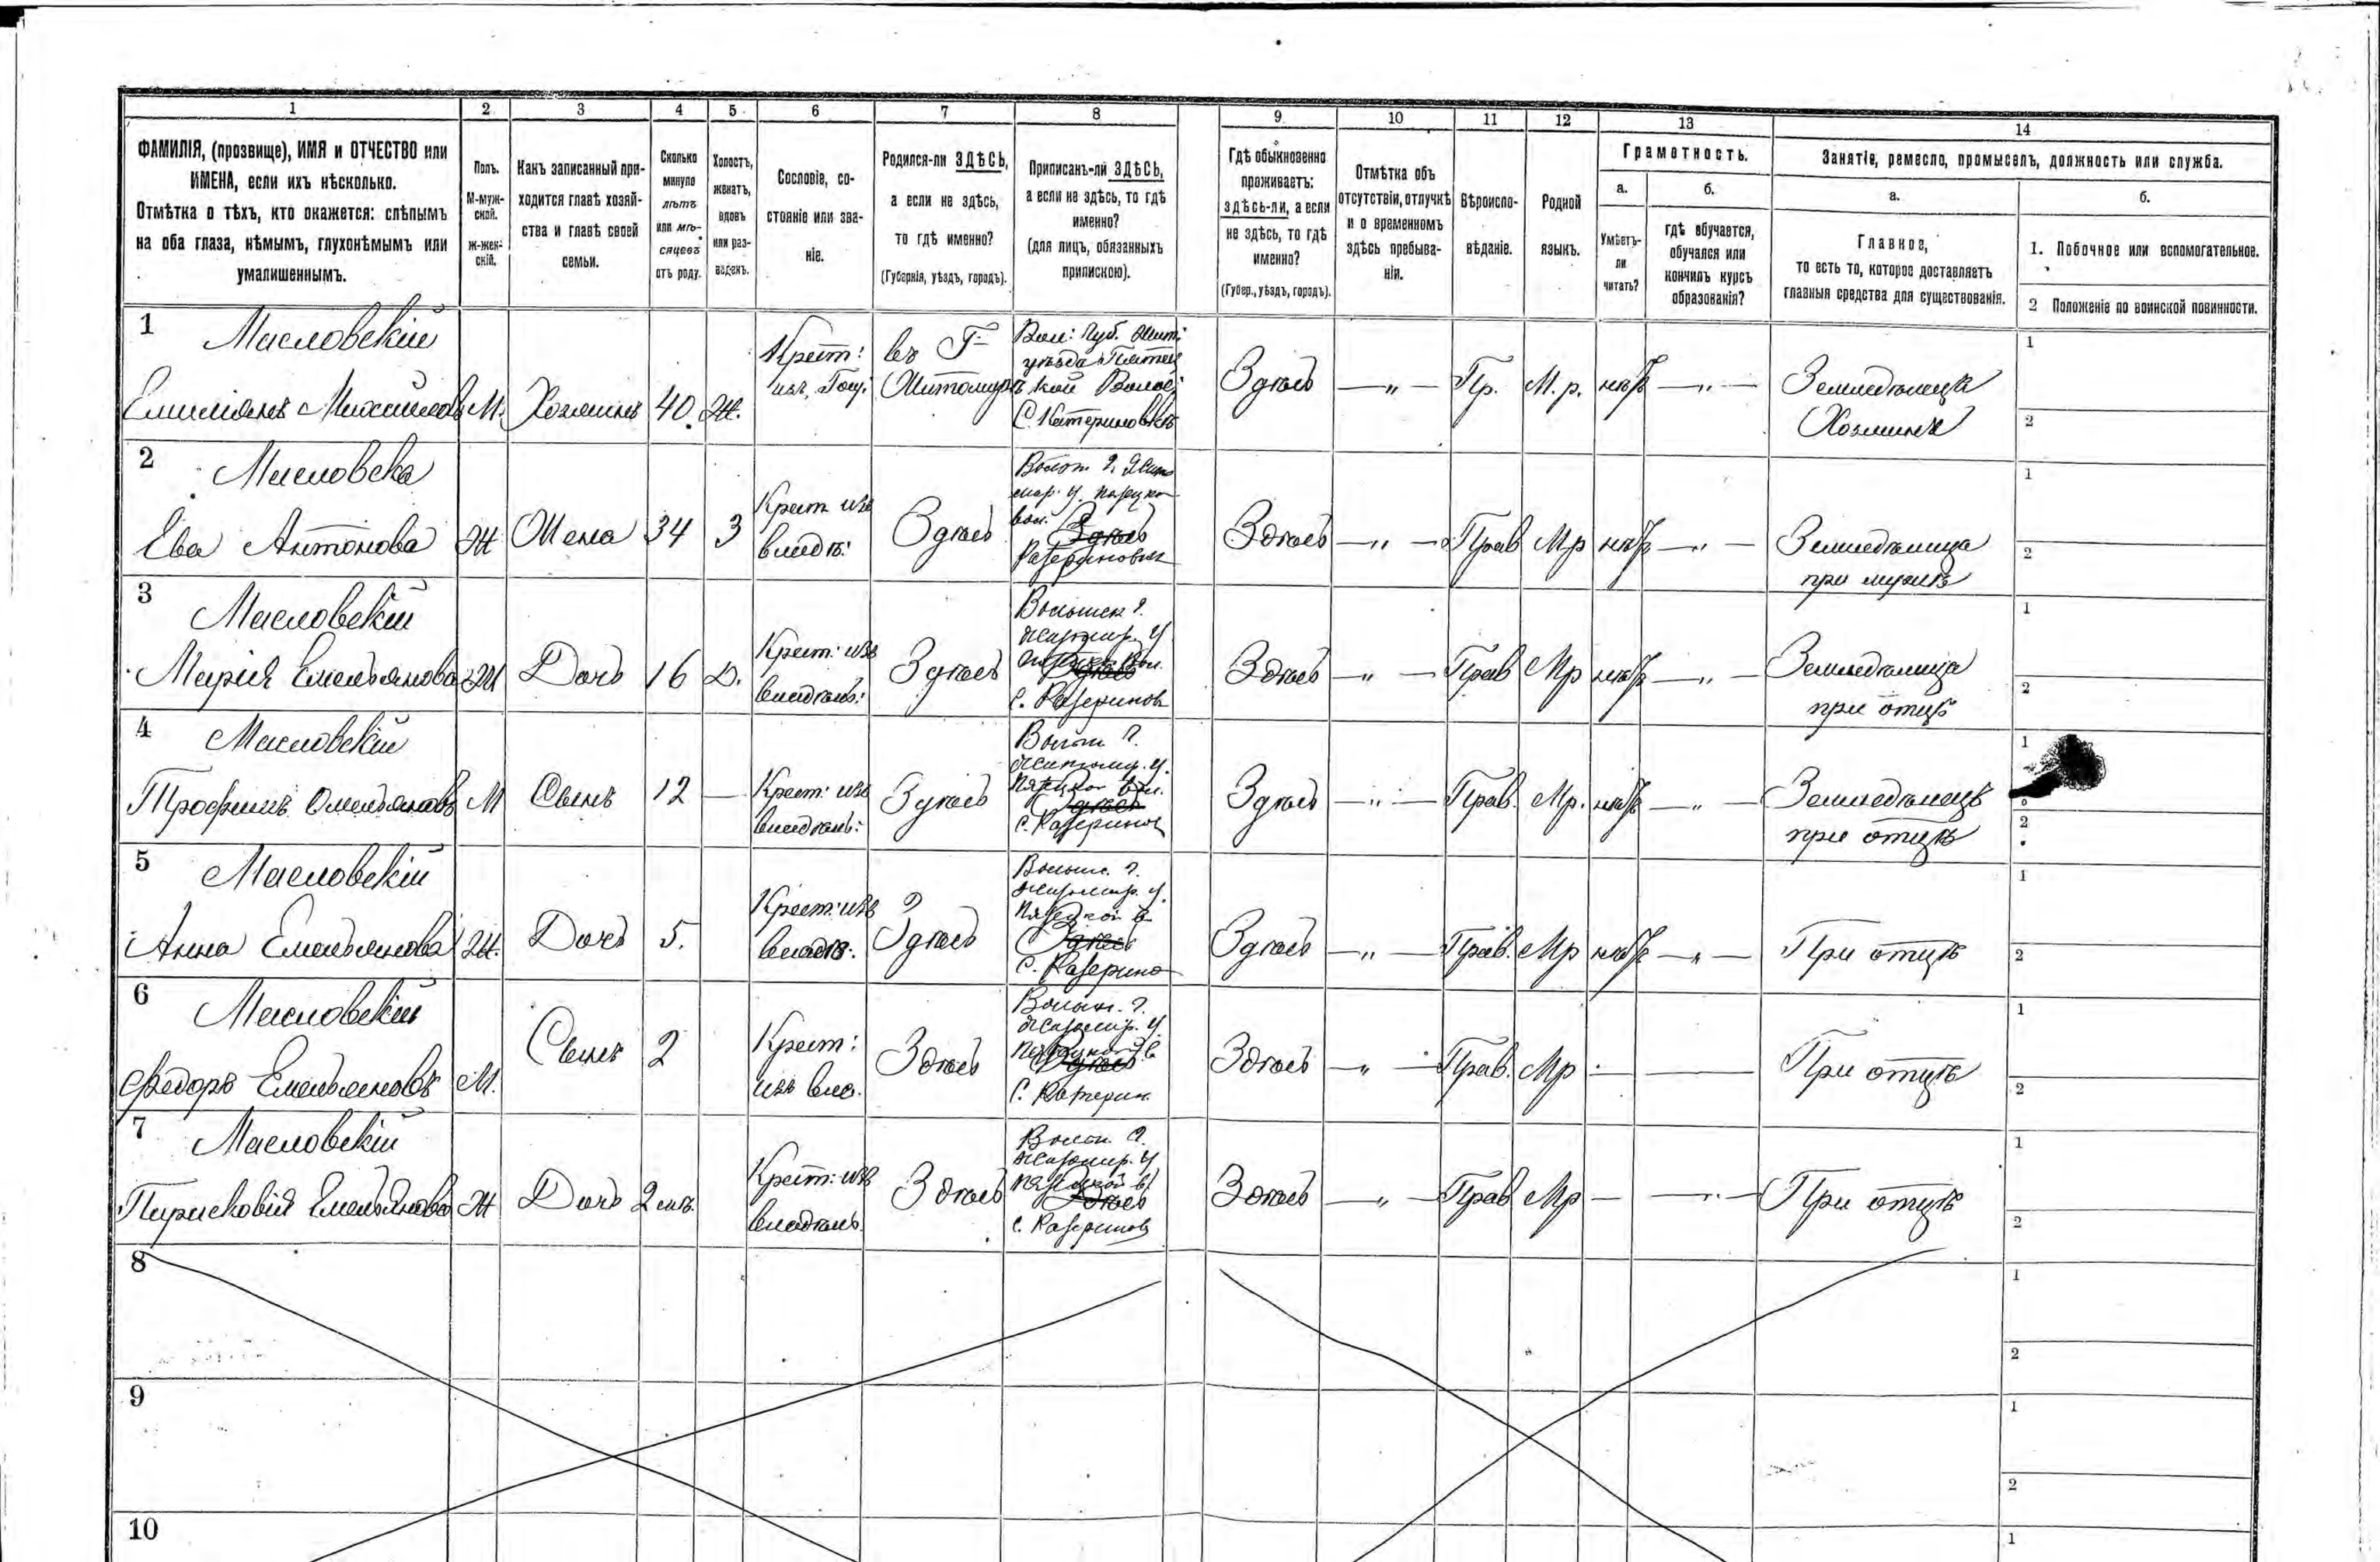 1 2 3 4 5 6 7 8 9 10 11 12 13 14
ФАМИЛІЯ, (прозвище), ИМЯ и ОТЧЕСТВО или
ИМЕНА, если ихъ нѣсколько.
Отмѣтка о тѣхъ, кто окажется: слѣпымъ
на оба глаза, нѣмымъ, глухонѣмымъ или
умалишеннымъ.
Полъ.
М-муж-
ской.
ж-жен-
скій.
Какъ записанный при-
ходится главѣ хозяй-
ства и главѣ своей
семьи.
Сколько
минуло
лѣтъ
или мѣ-
сяцевъ
отъ роду.
Холостъ,
женатъ,
вдовъ
или раз-
веденъ.
Сословіе, со-
стояніе или зва-
ніе.
Родился-ли ЗДѢСЬ,
а если не здѣсь,
то гдѣ именно?
(Губернія, уѣздъ, городъ).
Приписанъ-ли ЗДѢСЬ,
а если не здѣсь, то гдѣ
именно?
(для лицъ, обязанныхъ
припискою).
Гдѣ обыкновенно
проживаетъ:
здѣсь-ли, а если
не здѣсь, то гдѣ
именно?
(Губер., уѣздъ, городъ).
Отмѣтка объ
отсутствіи, отлучкѣ
и о временномъ
здѣсь пребыва-
ніи.
Вѣроиспо-
вѣданіе.
Родной
языкъ.
Грамотность.
а.
Умѣетъ-
ли
читать?
б.
гдѣ обучается,
обучался или
кончилъ курсъ
образованія?
Занятіе, ремесло, промыселъ, должность или служба.
а.
Главное,
то есть то, которое доставляетъ
главныя средства для существованія.
б.
1. Побочное или вспомогательное.
2 Положеніе по воинской повинности.
1 Масловскій
Емиліянъ Михаиловъ М. Хозяинъ 40. Ж.
Крест:
Здѣсь — „ — Пр. М. р. нѣтъ — „ —
Земледѣлецъ
Хозяинъ
1
2
2 Масловска
Ева Антонова Ж Жена 34 З
Крест изъ
владѣ:
Здѣсь
Здѣсь
Здѣсь — „ — Прав Мр нѣтъ — „ —
Земледѣлица
при мужѣ
1
2
3 Масловскій
Марія Емельянова Ж Дочь 16 Д.
Крест: изъ
владѣль:
Здѣсь
С. Катеринов
Здѣсь — „ — Прав Мр нѣтъ — „ —
Земледѣлица
при отцѣ
1
2
4 Масловскій
Трофимъ Омельяновъ М Сынъ 12 —
Крест: изъ
владѣль:
Здѣсь
Здѣсь
С. Катеринов
Здѣсь — „ — Прав. Мр. нѣтъ — „ —
Земледѣлецъ
при отцѣ
1
2
5 Масловскій
Анна Емельянова Ж. Дочь 5.
Крест: изъ
владѣ:
Здѣсь
Здѣсь
С. Катерино
Здѣсь — „ — Прав. Мр нѣтъ — „ —
При отцѣ
1
2
6 Масловскій
Федоръ Емельяновъ М. Сынъ 2
Крест:
изъ вла.
Здѣсь
Здѣсь
С. Катерин.
Здѣсь — „ — Прав. Мр
При отцѣ
1
2
7 Масловскій
Парасковія Емельянова Ж Дочь 2 мѣ.
Крест: изъ
владѣль.
Здѣсь
Здѣсь
С. Катеринов
Здѣсь — „ — Прав Мр —
При отцѣ
1
2
8
1
2
9
1
2
10
1